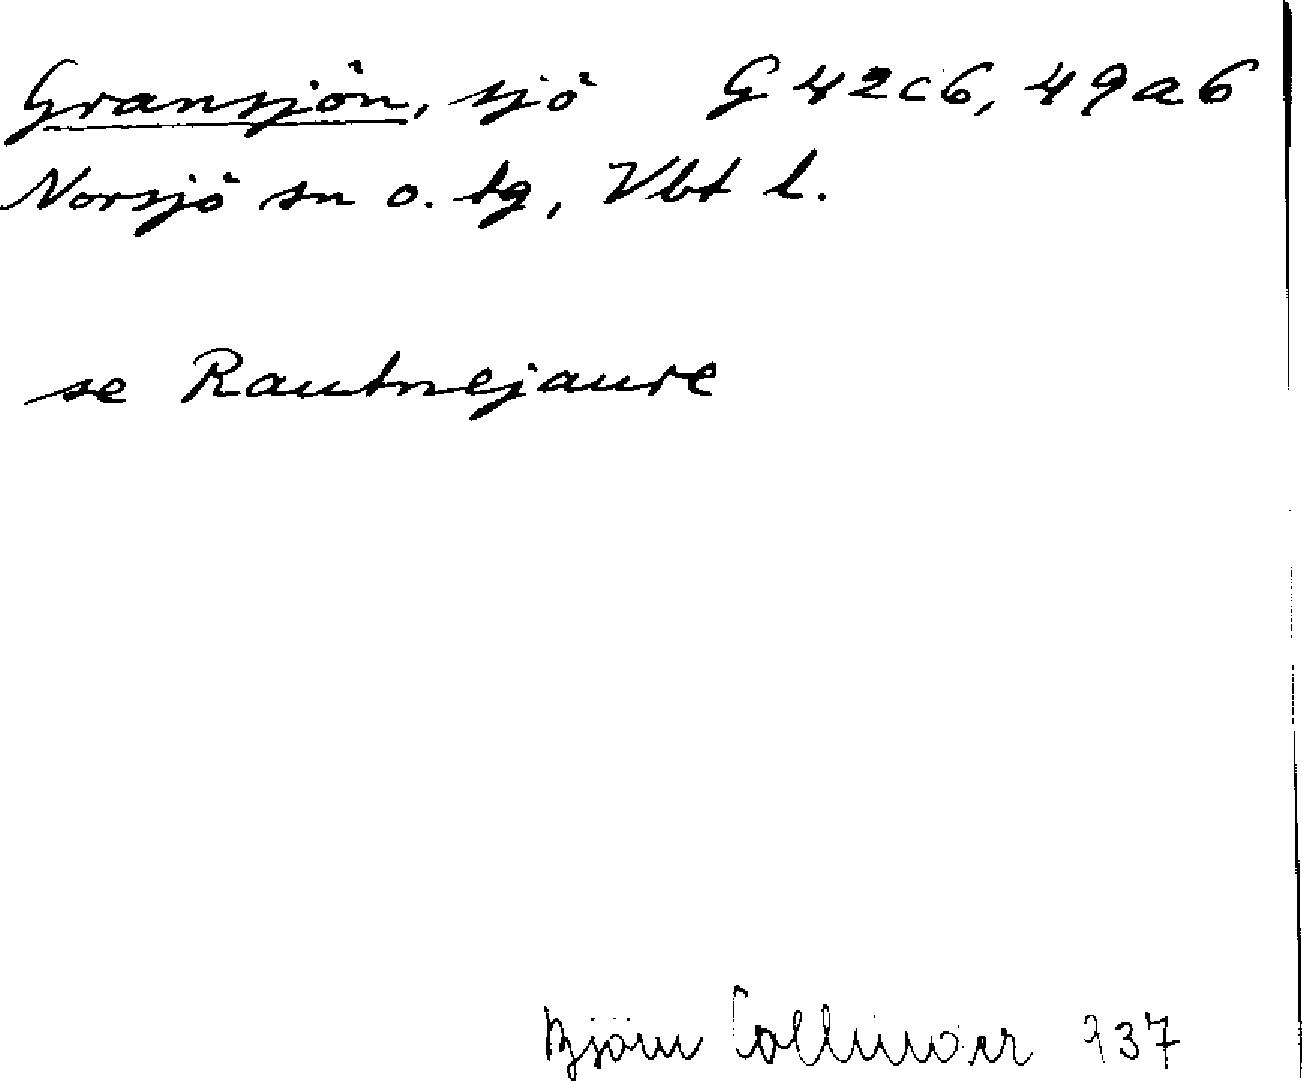 Gransjön, sjö G 42c6, 49a6
Norsjö sn o. tg, Vbt l.
se Rautnejaure
Björn Collinder 937